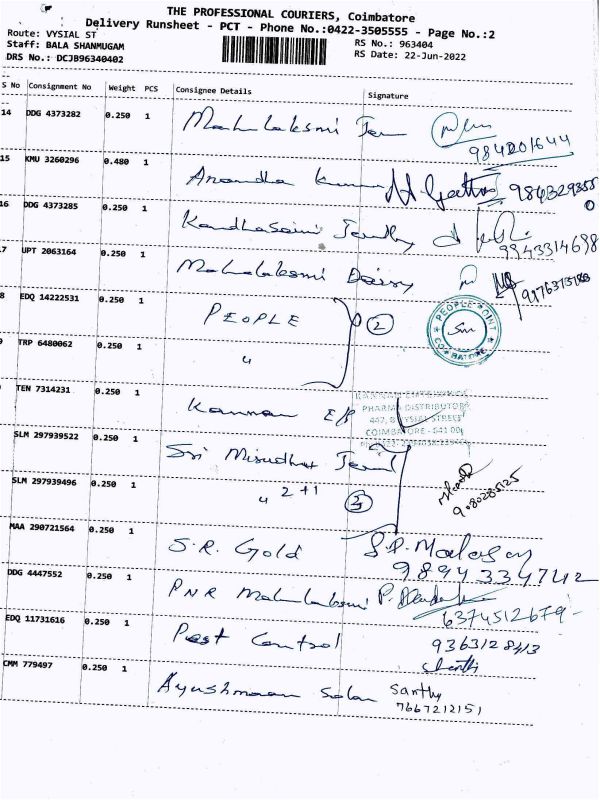 THE PROFESSIONAL COURIERS, Coimbatore
Delivery Runsheet - PCT - Phone No.:0422-3505555 - Page No.:2
Route: VYSIAL ST
Staff: BALA SHANMUGAM
DRS No.: DCJB96340402
RS No.: 963404
RS Date: 22-Jun-2022
S No Consignment No Weight PCS Consignee Details Signature
14 DDG 4373282 0.250 1 Mahalaksmi
984201644
15 KMU 3260296 0.480 1 Anandha Kumar
16 DDG 4373285 0.250 1 Kandhasami
9943314698
7 UPT 2063164 0.250 1 Mahalaksmi Dairy
8 EDQ 14222531 0.250 1 PEOPLE 2 PEOPLE POINT
9 TRP 6480062 0.250 1 "
TEN 7314231 0.250 1 Kannan E/P
PHARMA DISTRIBUTORS
447, VYSIAL STREET
COIMBATORE - 641 001
SLM 297939522 0.250 1 Sri
SLM 297939496 0.250 1 " 2+1
9080285125
MAA 290721564 0.250 1 S.R. Gold
9894334742
DDG 4447552 0.250 1 PNR Mahalaksmi P.
6374512679
EDQ 11731616 0.250 1 Pest Control
Shanthi
CMM 779497 0.250 1 Ayushmaan Salan Santhy
7667212151